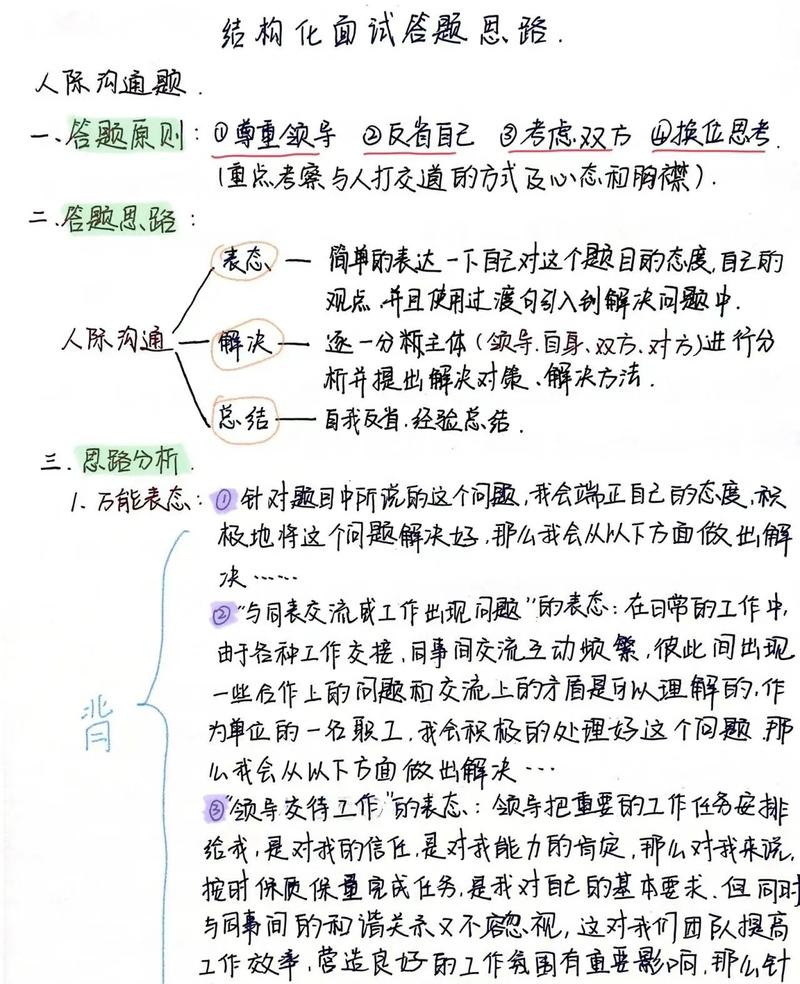 结构化面试答题思路.
人际沟通题.
一、答题原则：①尊重领导 ②反省自己 ③考虑双方 ④换位思考.
(重点考察与人打交道的方式及心态和胸襟).
二、答题思路：
表态 — 简单的表达一下自己对这个题目的态度,自己的
观点.并且使用过渡句引入到解决问题中.
人际沟通 解决 — 逐一分析主体(领导.自身、双方、对方)进行分
析并提出解决对策、解决方法.
总结 — 自我反省.经验总结.
三.思路分析.
1.万能表态：①针对题目中所说的这个问题,我会端正自己的态度,积
极地将这个问题解决好,那么我会从以下方面做出解
决……
②"与同事交流或工作出现问题"的表态：在日常的工作中,
由于各种工作交接,同事间交流互动频繁,彼此间出现
一些合作上的问题和交流上的矛盾是可以理解的,作
为单位的一名职工,我会积极的处理好这个问题,那
么我会从以下方面做出解决…
背
③"领导交待工作"的表态：领导把重要的工作任务安排
给我,是对我的信任,是对我能力的肯定,那么对我来说,
按时保质保量完成任务,是我对自己的基本要求.但同时
与同事间的和谐关系又不容忽视,这对我们团队提高
工作效率,营造良好的工作氛围有重要影响,那么针